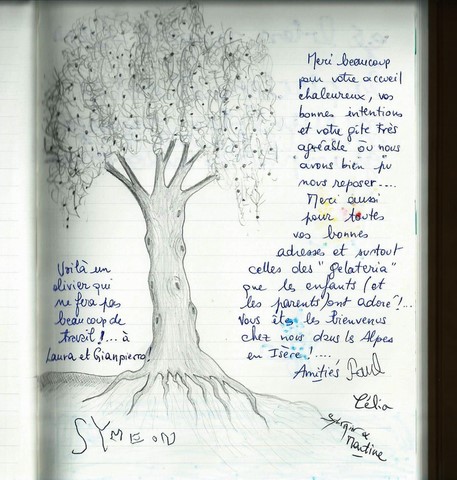 Merci beaucoup
pour votre accueil
chaleureux, vos
bonnes intentions
et votre gîte très
agréable où nous
avons bien pu
nous reposer....
Merci aussi
pour toutes
vos bonnes
adresses et surtout
celles des "gelateria"
que les enfants (et
les parents) ont adoré!...
Vous êtes les bienvenus
chez nous dans les Alpes
en Isère!....
Amitiés Paul
Célia
Martine
Voilà un
olivier qui
ne fera pas
beaucoup de
travail!... à
Laura et Gianpierro
SYMEON